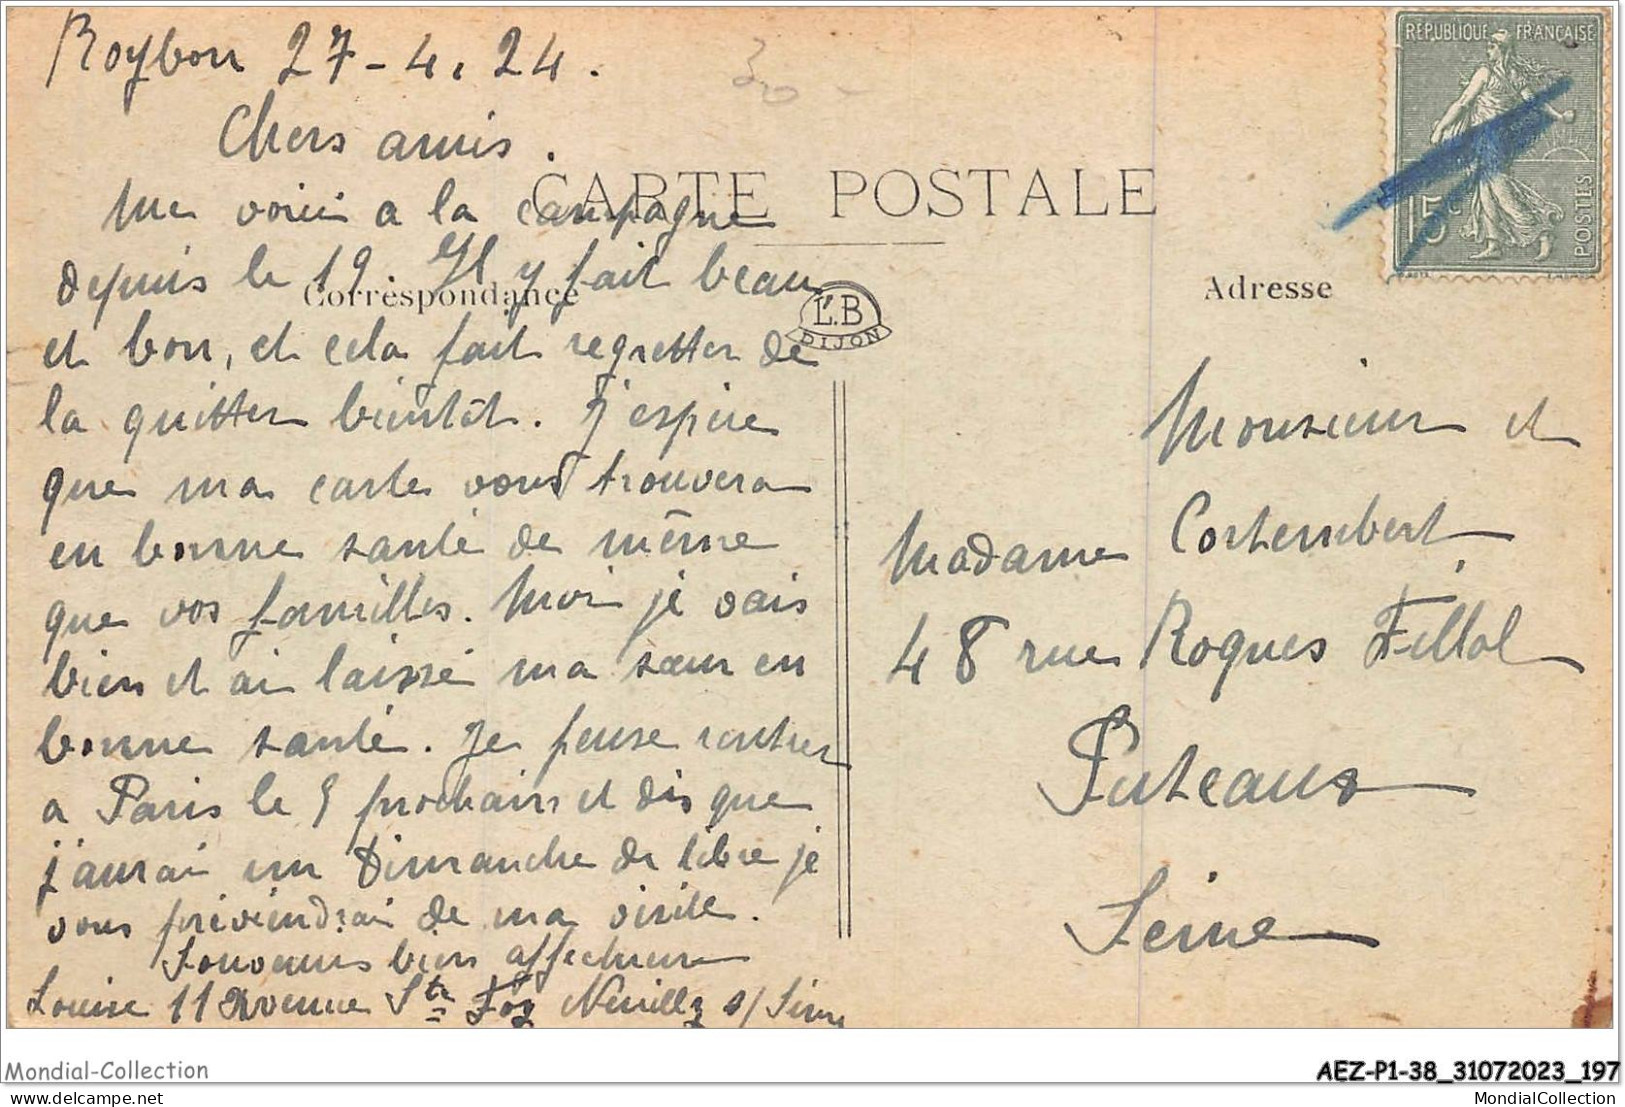 Roybon 27-4.24.
Chers amis.
Me voici a la campagne
depuis le 19. Il y fait beau
et bon, et cela fait regretter de
la quitter bientôt. J'espère
que ma carte vous trouvera
en bonne santé de même
que vos familles. Moi je vais
bien et ai laissé ma sœur en
bonne santé. Je pense rentrer
a Paris le 5 prochain et dis que
j'aurai un Dimanche de libre je
vous préviendrai de ma visite.
Souvenirs bien affectueux
Louise 11 Avenue Ste Foy Neuilly s/ Seine
CARTE POSTALE
Correspondance
L.B
DIJON
Adresse
REPUBLIQUE FRANÇAISE
15c
POSTES
30 -
Monsieur et
Madame Cortembert
48 rue Roques Fillol
Puteaux
Seine
Mondial-Collection
AEZ-P1-38_31072023_197
delcampe.net
MondialCollection